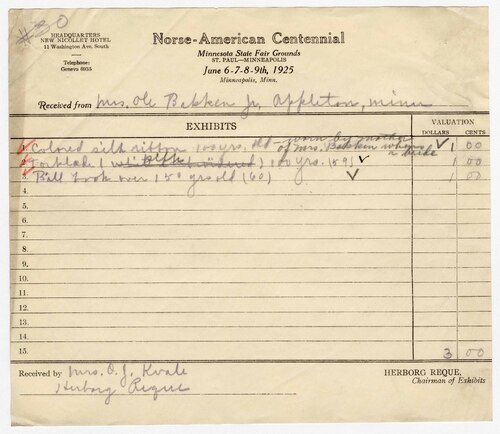 #30
HEADQUARTERS
NEW NICOLLET HOTEL
11 Washington Ave. South
Telephone:
Geneva 8935
Norse-American Centennial
Minnesota State Fair Grounds
ST. PAUL—MINNEAPOLIS
June 6-7-8-9th, 1925
Minneapolis, Minn.
Received from Mrs. Ole Bakken Jr, Appleton, Minn
EXHIBITS
VALUATION
DOLLARS CENTS
1. Colored silk ribbon 100 yrs. old worn by mother of Mrs. Bakken when a bride ✓ 1 00
2. Forklade ( with embroidered) 100 yrs. (59) ✓ 1 00
3. Bill book over 150 yrs old (60) ✓ 1 00
4.
5.
6.
7.
8.
9.
10.
11.
12.
13.
14.
15. 3 00
Received by Mrs. O. J. Kvale
Herborg Reque
HERBORG REQUE,
Chairman of Exhibits